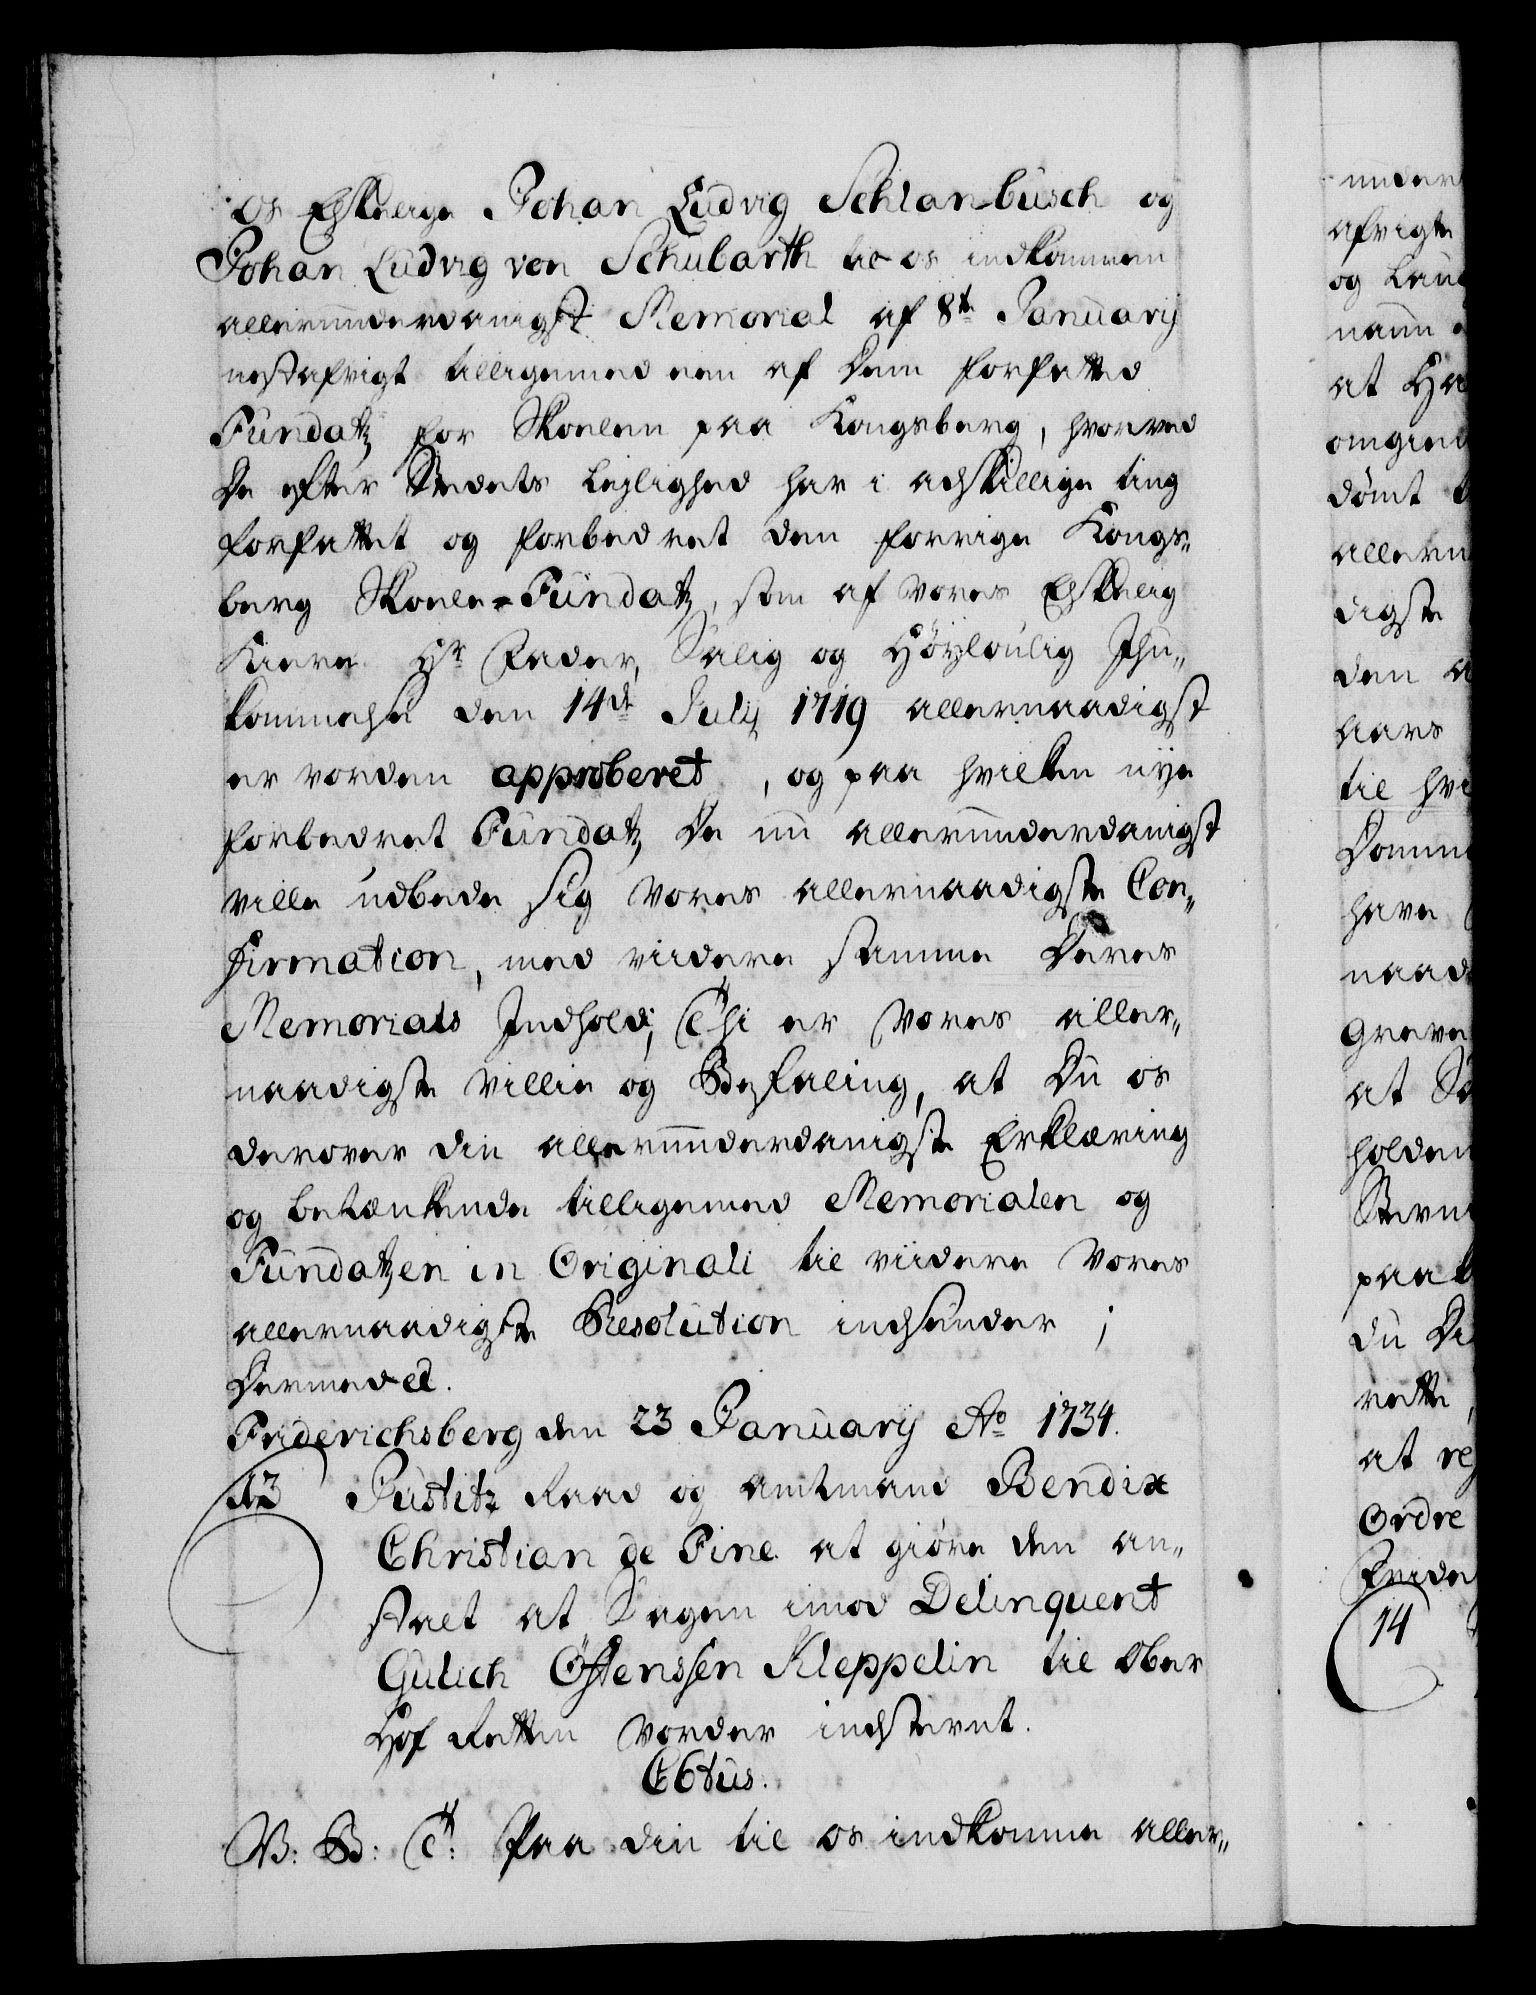 Os Elskelige Johan Ludvig Schlanbusch og
Johan Ludvig von Schubarth til os indkommen
allerunderdanigst Memorial af 8de Januarij
nestafvigt tilligemed een af Dem forfatted
Fundatz for Skoelen paa Kongsberg, hvorved
De efter Stedets Lejlighed har i adskillige ting
forfattet og forbedret den forrige Kongs„
berg Skoele-Fundatz, som af Vores Elskelig
Kiere Hr Fader, Salig og Høyloulig Ihu„
kommelse den 14de Julij 1719 allernaadigst
er vorden approberet, og paa hvilken nye
forbedret Fundatz De nu allerunderdanigst
ville udbede sig Vores allernaadigste Con„
firmation, med viidere samme Deres
Memorials Indhold; Thi er Vores aller„
naadigste Villie og Befaling, at Du os
derover din allerunderdanigste Erklæring
og betænkende tilligemed Memorialen og
Fundatzen in Originali til viidere Vores
allernaadigste Resolution indsender;
Dermed etc.
Friderichsberg den 23 Januarij Ao 1734.
13 Justitz Raad og Amtmand Bendix
Christian de Fine at giøre den an„
stalt at Sagen imod Delinquent
Gulich Østenssen Kleppelin til Ober
Hof Retten vorder indstevnt.
C6tus.
V: G: T: Paa din til os indkomne aller„
under
afvigte
og Lau
naun
at Ha
omgie
dømt
allern
digste
den
Aars
til hvi
Domme
have
naad
Greve
at Sa
holden
Stevn
paa
du Di
rette,
at re
Ordre
Fride
14